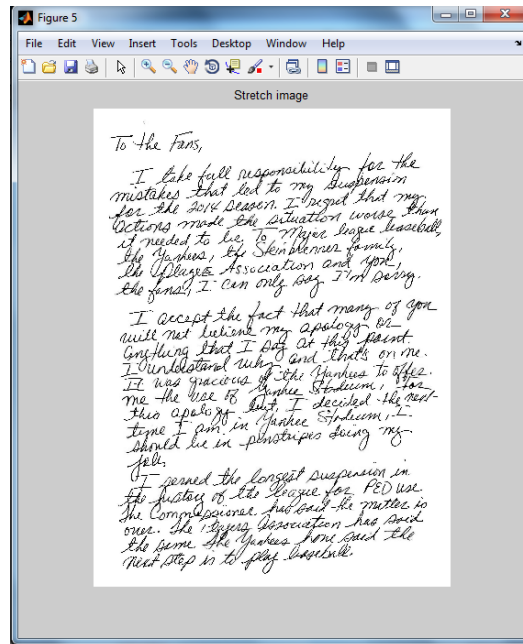 Figure 5
File Edit View Insert Tools Desktop Window Help
Stretch image
To the Fans,
I take full responsibility for the
mistakes that led to my suspension
for the 2014 season. I regret that my
actions made the situation worse than
it needed to be. To Major League Baseball,
the Yankees, the Steinbrenner family,
the Players Association and you,
the fans, I can only say I'm sorry.
I accept the fact that many of you
will not believe my apology or
anything that I say at this point.
I understand why and that's on me.
It was gracious of the Yankees to offer
me the use of Yankee Stadium, for
this apology but, I decided the next
time I am in Yankee Stadium, I
should be in pinstripes doing my
job.
I served the longest suspension in
the history of the league for PED use.
The Commissioner has said the matter is
over. The Players Association has said
the same. The Yankees have said the
next step is to play baseball.